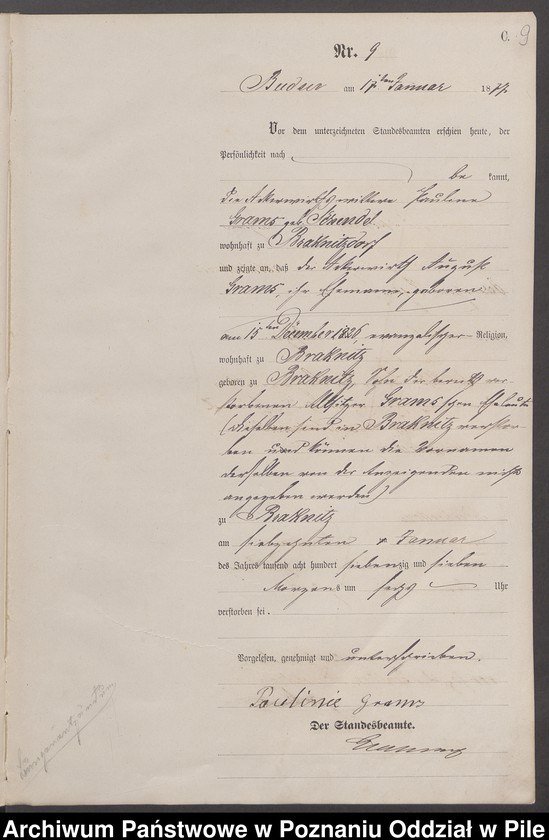 C. 9
Nr. 9
am 17ten Januar 1877
Vor dem unterzeichneten Standesbeamten erschien heute, der
Persönlichkeit nach
be kannt,
die Ackerwirthswittwe Pauline
Grams geb.
wohnhaft zu Braknitzdorf
und zeigte an, daß der Ackerwirth August
Grams, ihr Ehemann, geboren
am 15ten December 1826, evangelischer Religion,
wohnhaft zu Braknitz
geboren zu Braknitz, Sohn der bereits ver-
storbenen Altsitzer Grams'schen Eheleute
(dieselben sind in Braknitz verstor-
ben und können die Vornamen
derselben von der Anzeigenden nicht
angegeben werden)
zu Braknitz
am siebzehnten Januar
des Jahres tausend acht hundert siebenzig und sieben
Morgens um sechs Uhr
verstorben sei.
Vorgelesen, genehmigt und unterschrieben.
Paulinie Grams
Der Standesbeamte.
Archiwum Państwowe w Poznaniu Oddział w Pile